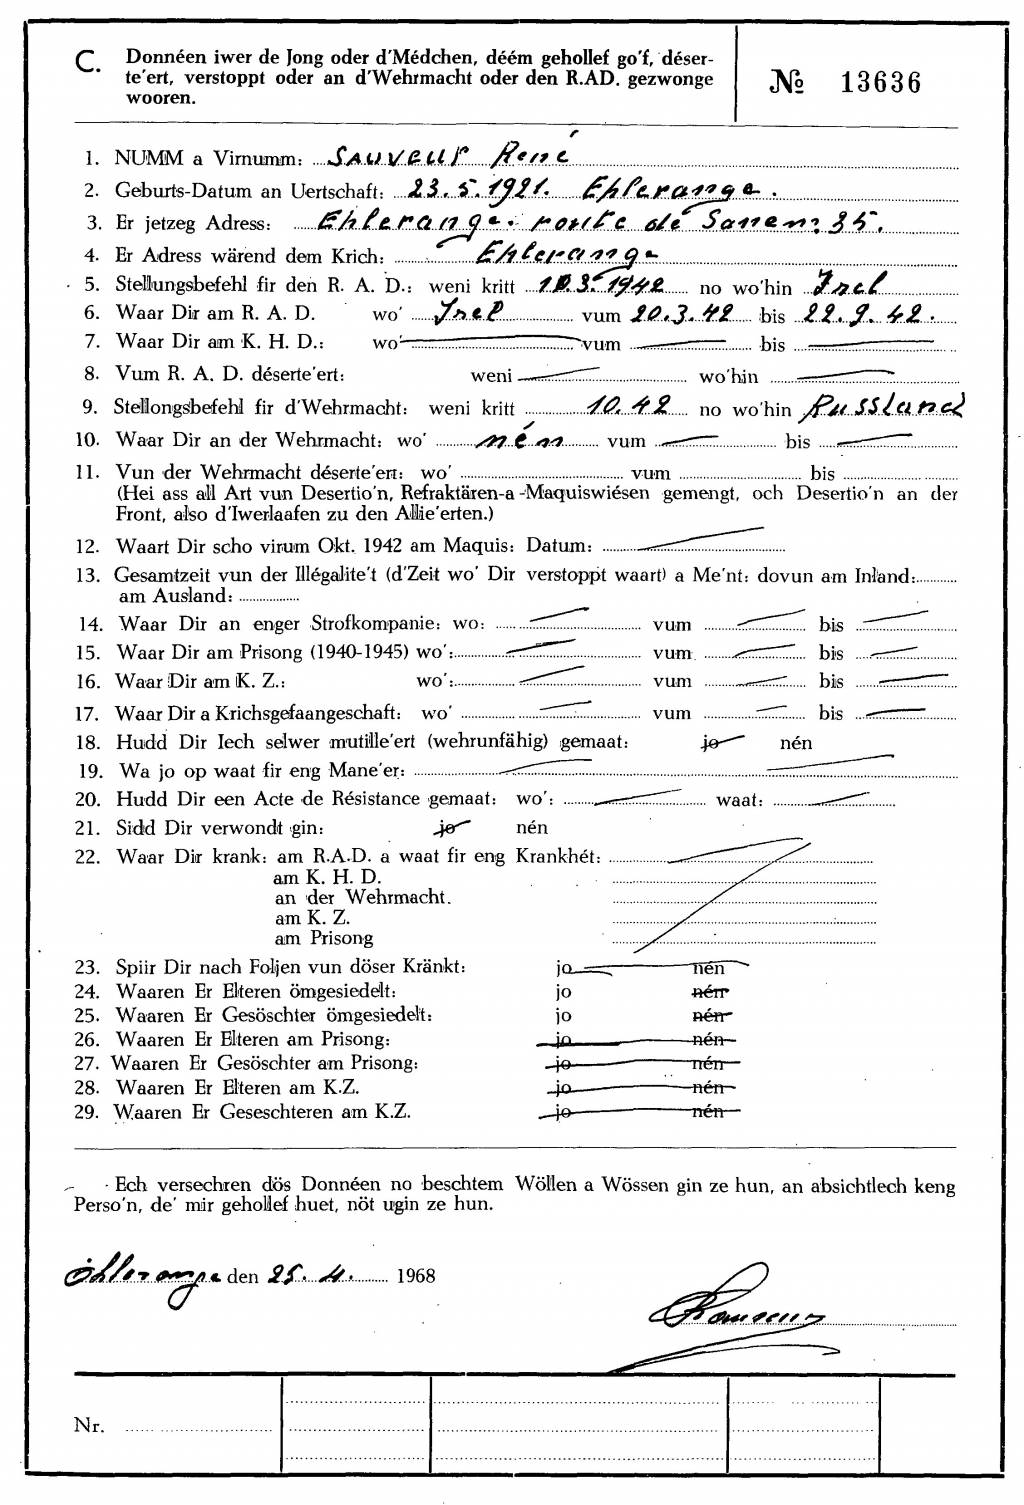 C. Donnéen iwer de Jong oder d'Médchen, déém gehollef go'f, déser-
te'ert, verstoppt oder an d'Wehrmacht oder den R.AD. gezwonge
wooren.
№ 13636
1. NUMM a Virnumm: SAUVEUR René
2. Geburts-Datum an Uertschaft: 23.5.1921. Ehlerange.
3. Er jetzeg Adress: Ehlerange. route de Sanem 35.
4. Er Adress wärend dem Krich: Ehlerange
5. Stellungsbefehl fir den R. A. D.: weni kritt 10.3.1942 no wo'hin Irel
6. Waar Dir am R. A. D. wo' Irel vum 20.3.42 bis 22.9.42.
7. Waar Dir am K. H. D.: wo' vum bis
8. Vum R. A. D. déserte'ert: weni wo'hin
9. Stellongsbefehl fir d'Wehrmacht: weni kritt 10.42 no wo'hin Russland
10. Waar Dir an der Wehrmacht: wo' nén vum bis
11. Vun der Wehrmacht déserte'ert: wo' vum bis
(Hei ass all Art vun Desertio'n, Refraktären-a-Maquiswiésen gemengt, och Desertio'n an der
Front, also d'Iwerlaafen zu den Allie'erten.)
12. Waart Dir scho virum Okt. 1942 am Maquis: Datum:
13. Gesamtzeit vun der Illégalite't (d'Zeit wo' Dir verstoppt waart) a Me'nt: dovun am Inland:
am Ausland:
14. Waar Dir an enger Strofkompanie: wo: vum bis
15. Waar Dir am Prisong (1940-1945) wo': vum bis
16. Waar Dir am K. Z.: wo': vum bis
17. Waar Dir a Krichsgefaangeschaft: wo' vum bis
18. Hudd Dir Iech selwer mutille'ert (wehrunfähig) gemaat: jo nén
19. Wa jo op waat fir eng Mane'er:
20. Hudd Dir een Acte de Résistance gemaat: wo': waat:
21. Sidd Dir verwondt gin: jo nén
22. Waar Dir krank: am R.A.D. a waat fir eng Krankhét:
am K. H. D.
an der Wehrmacht.
am K. Z.
am Prisong
23. Spiir Dir nach Foljen vun döser Kränkt: jo nén
24. Waaren Er Elteren ömgesiedelt: jo nén
25. Waaren Er Gesöschter ömgesiedelt: jo nén
26. Waaren Er Elteren am Prisong: jo nén
27. Waaren Er Gesöschter am Prisong: jo nén
28. Waaren Er Elteren am K.Z. jo nén
29. Waaren Er Geseschteren am K.Z. jo nén
Ech versechren dös Donnéen no beschtem Wöllen a Wössen gin ze hun, an absichtlech keng
Perso'n, de' mir gehollef huet, nöt ugin ze hun.
Ehlerange den 25. 4. 1968
Nr.